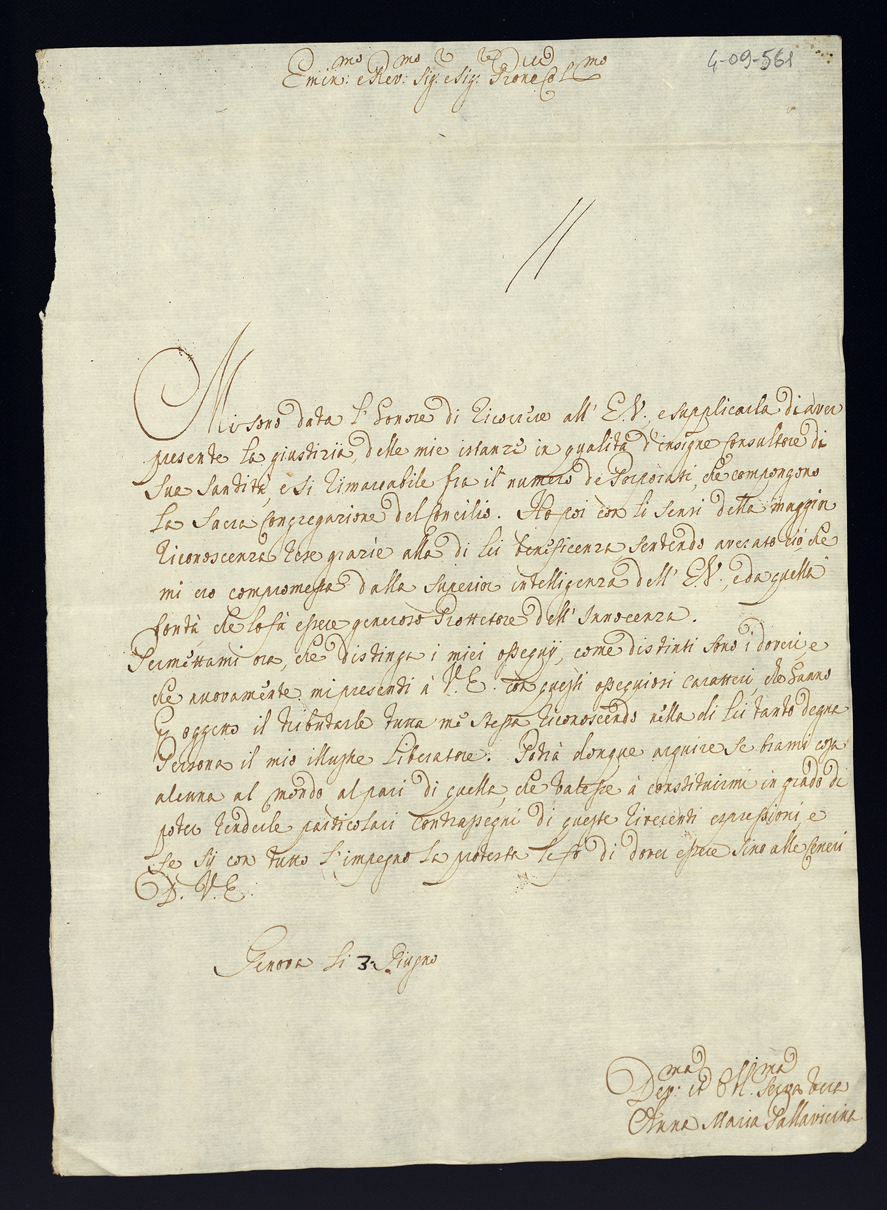 4-09-561
Emin:mo e Rev:mo Sig:r e Sig:r Prone Col:mo
Mi sono data l'honore di ricorrere all' E.V., e supplicarla di aver
presente la giustizia delle mie istanze in qualità d'insigne Consultore di
Sua Santità, e si rimarcabile fra il numero de Porporati, che compongono
la Sacra Congregazione del Concilio. Ho poi con li sensi della maggior
riconoscenza rese grazie alla di lei beneficenza sentendo averato ciò che
mi ero compromessa dalla superior intelligenza dell' E.V., e da quella
bontà che lo fà essere generoso Prottetore dell' Innocenza.
Permettami ora, che distinga i miei ossequij, come distinti sono i doveri, e
che nuovamente mi presenti à V.E. con questi ossequiosi caratteri, che hanno
p oggetto il tributarle tutta me stessa riconoscendo nella di lei tanto degna
Persona il mio illustre Liberatore. Potrà donque arguire se brami cosa
alcuna al mondo al pari di quella, che valesse à constituirmi in grado di
poter renderle particolari contrassegni di queste riverenti espressioni, e
se sij con tutto l'impegno la protesta le fò di dover essere sino alle Ceneri
D. V. E.
Genova li 3 Giugno
Dev:ma et Obl:ma Serva vera
Anna Maria Pallavicina